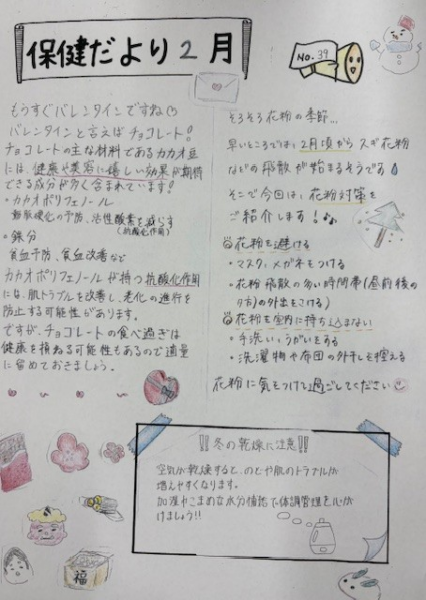 保健だより2月
No.39
もうすぐバレンタインですね♡
バレンタインと言えばチョコレート!
チョコレートの主な材料であるカカオ豆
には、健康や美容に嬉しい効果が期待
できる成分が多く含まれています!
・カカオポリフェノール
動脈硬化の予防、活性酸素を減らす
(抗酸化作用)
・鉄分
貧血予防、貧血改善など
カカオポリフェノールが持つ抗酸化作用
には、肌トラブルを改善し、老化の進行を
防止する可能性があります。
ですが、チョコレートの食べ過ぎは
健康を損ねる可能性もあるので適量
に留めておきましょう。
そろそろ花粉の季節...
早いところでは、2月頃からスギ花粉
などの飛散が始まるそうです
そこで今回は、花粉対策を
ご紹介します!
花粉を避ける
・マスク、メガネをつける
・花粉飛散の多い時間帯(昼前後の
夕方)の外出をさける)
花粉を室内に持ち込まない
・手洗い、うがいをする
・洗濯物や布団の外干しを控える
花粉に気をつけて過ごしてください
!!冬の乾燥に注意!!
空気が乾燥すると、のどや肌のトラブルが
増えやすくなります。
加湿やこまめな水分補給で体調管理を心が
けましょう!!
福